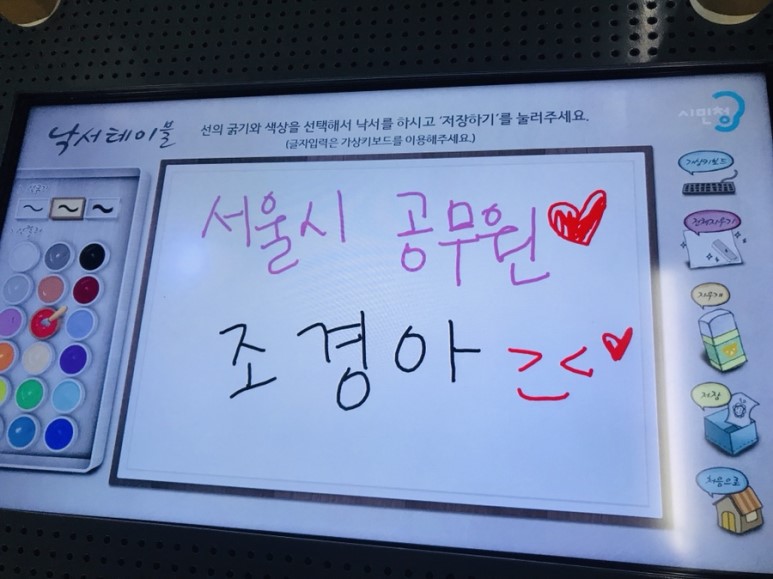 낙서테이블
선의 굵기와 색상을 선택해서 낙서를 하시고 '저장하기'를 눌러주세요.
(글자입력은 가상키보드를 이용해주세요.)
시민청
서울시 공무원
조경아 ><
가상키보드
전체지우기
지우개
저장
처음으로